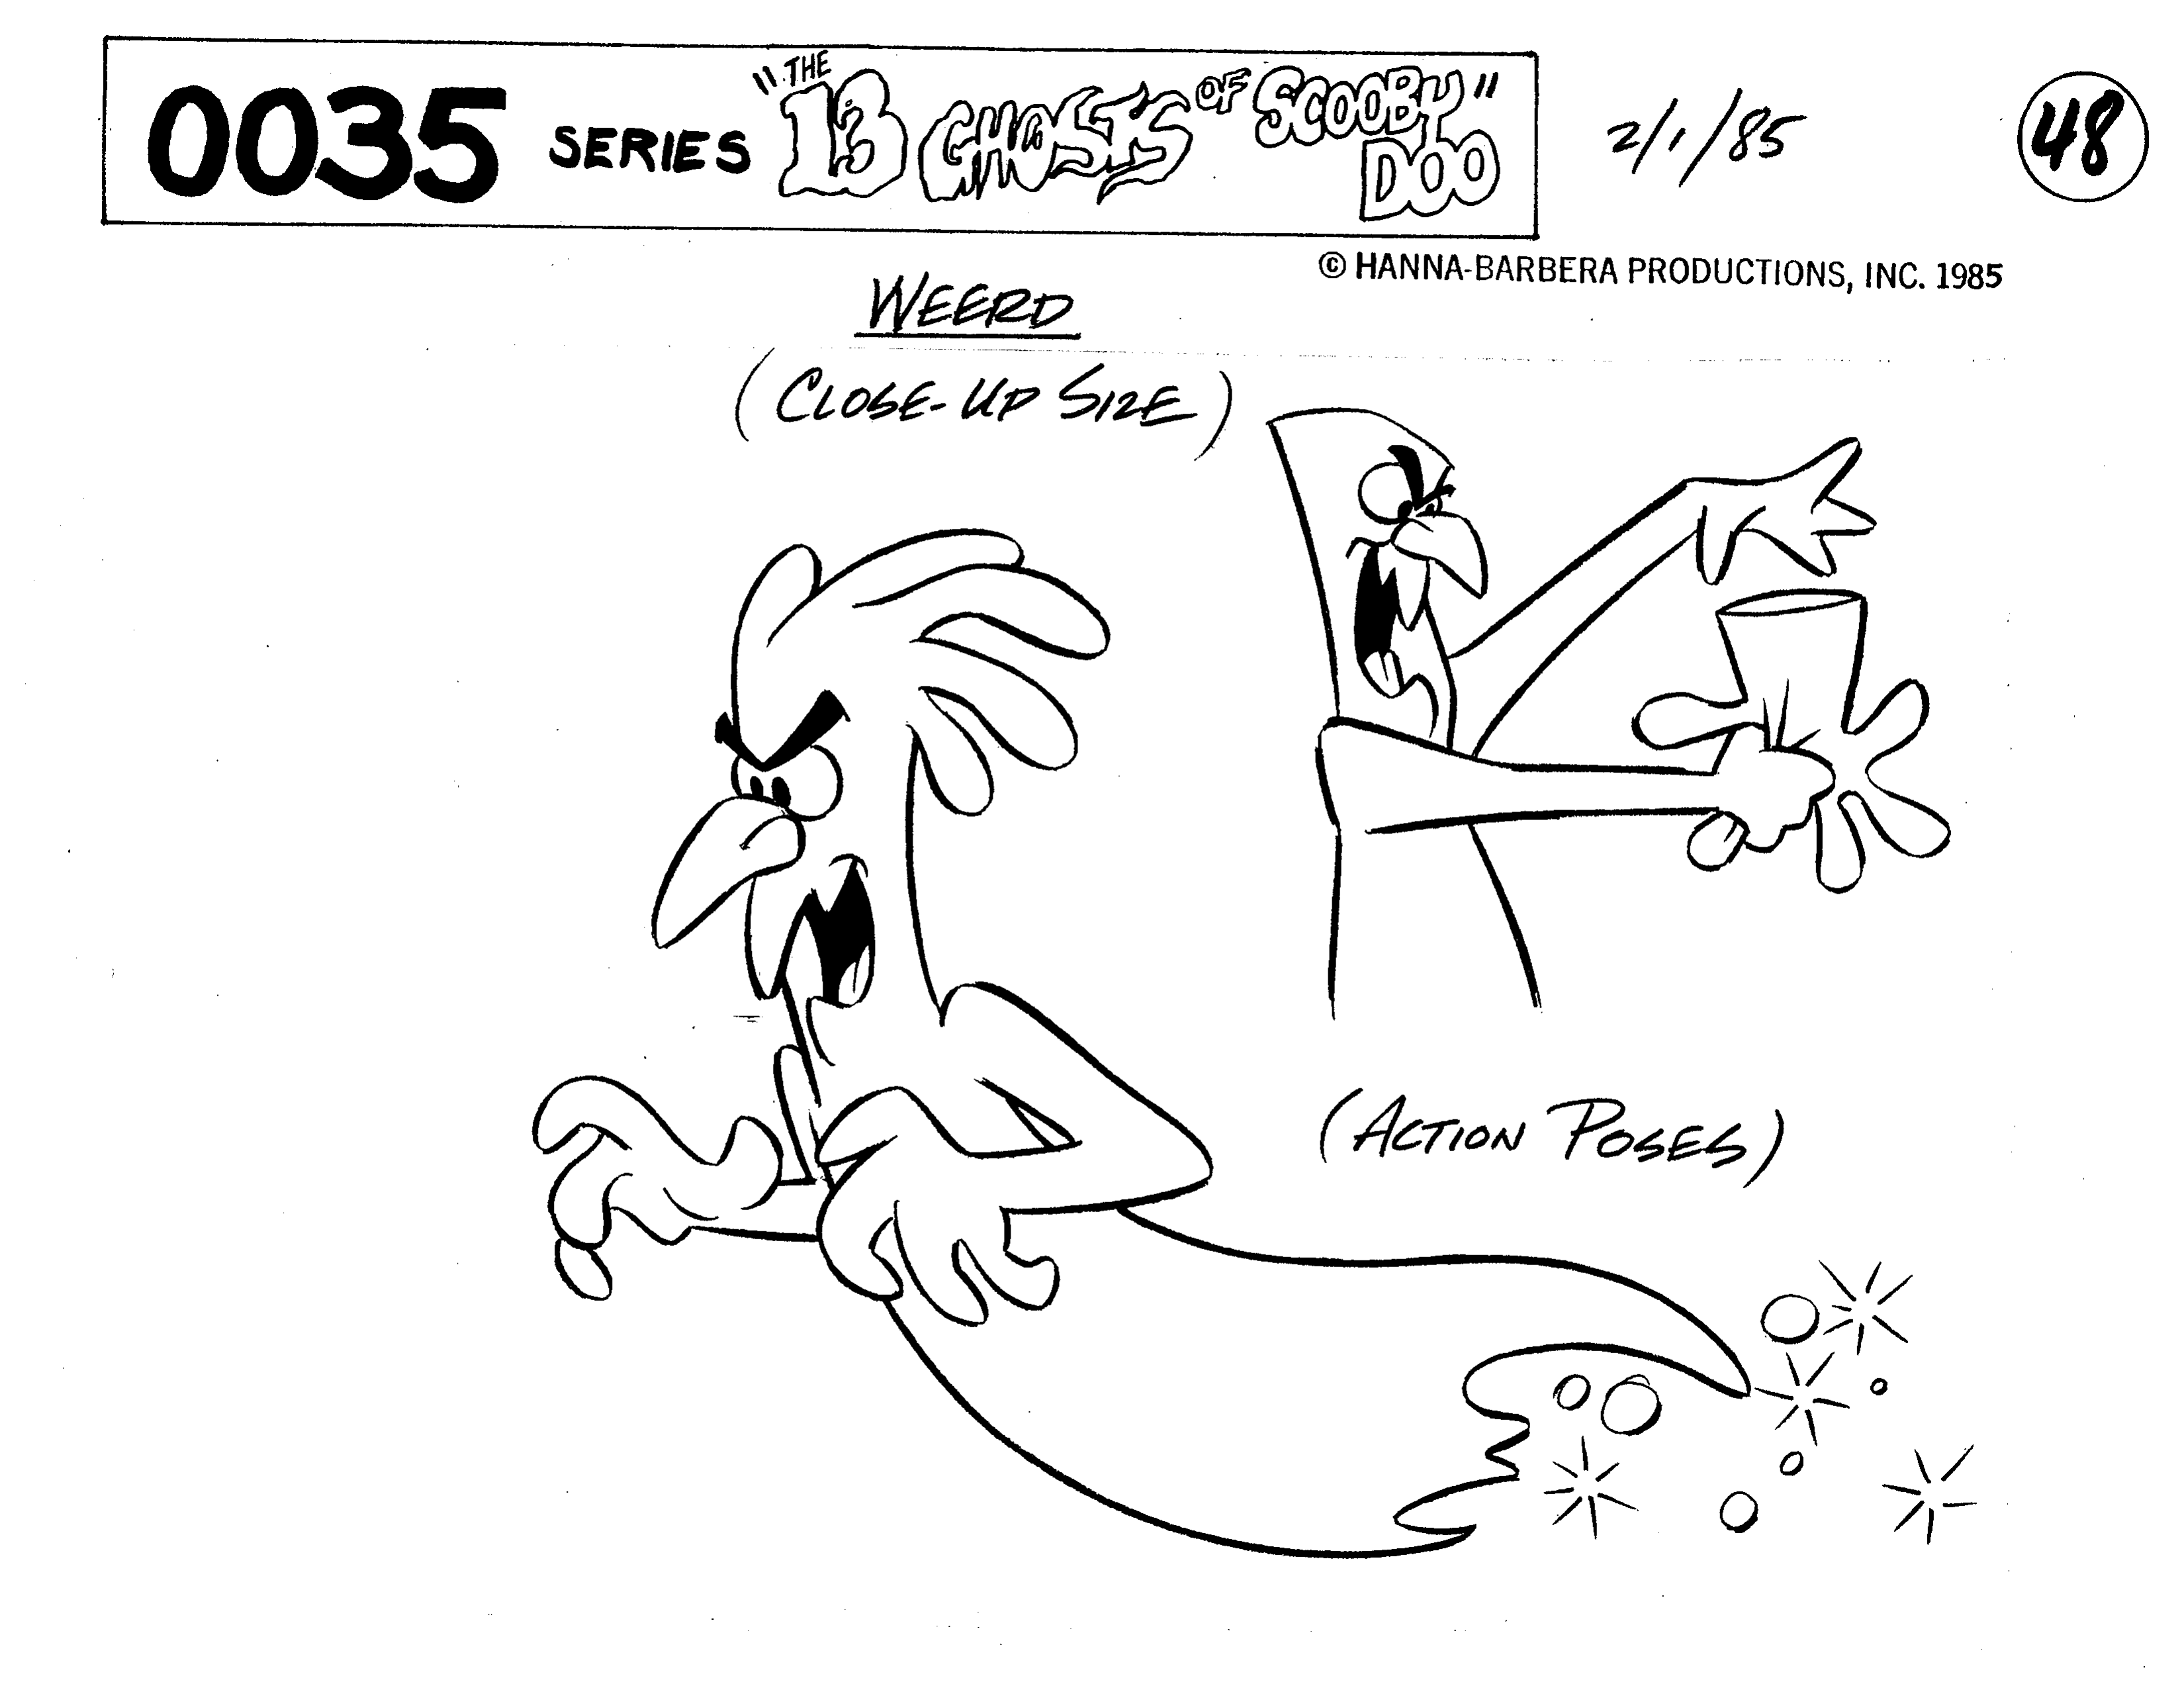 0035 SERIES "THE 13 GHOSTS OF SCOOBY DOO" 2/1/85 48
© HANNA-BARBERA PRODUCTIONS, INC. 1985
WEERD
(CLOSE-UP SIZE)
(ACTION POSES)